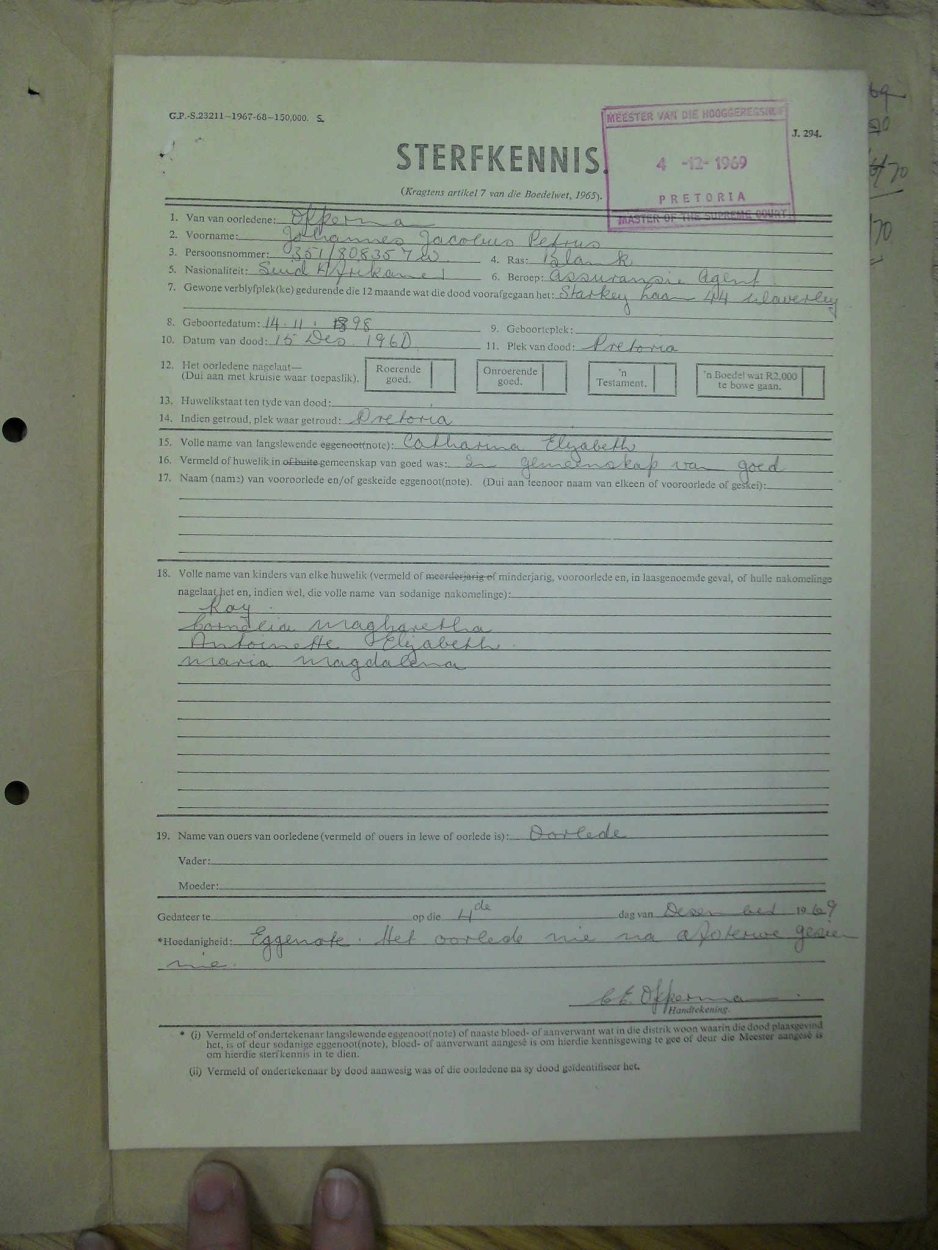 G.P.-S.23211—1967-68—150,000. S.
J. 294.
MEESTER VAN DIE HOOGGEREGSHOF
4 -12- 1969
PRETORIA
MASTER OF THE SUPREME COURT
STERFKENNIS.
(Kragtens artikel 7 van die Boedelwet, 1965).
1. Van van oorledene: Opperman
2. Voorname: Johannes Jacobus Petrus
3. Persoonsnommer: 351/808357 W 4. Ras: Blank
5. Nasionaliteit: Suid Afrikaner 6. Beroep: Assuransie Agent
7. Gewone verblyfplek(ke) gedurende die 12 maande wat die dood voorafgegaan het: Starkey laan 44 Waverley
8. Geboortedatum: 14.11.1898 9. Geboorteplek:
10. Datum van dood: 15 Des. 1960 11. Plek van dood: Pretoria
12. Het oorledene nagelaat—
(Dui aan met kruisie waar toepaslik).
Roerende goed.
Onroerende goed.
'n Testament.
'n Boedel wat R2,000 te bowe gaan.
13. Huwelikstaat ten tyde van dood:
14. Indien getroud, plek waar getroud: Pretoria
15. Volle name van langslewende eggenoot(note): Catharina Elizabeth
16. Vermeld of huwelik in of buite gemeenskap van goed was: In gemeenskap van goed
17. Naam (name) van vooroorlede en/of geskeide eggenoot(note). (Dui aan teenoor naam van elkeen of vooroorlede of geskei):
18. Volle name van kinders van elke huwelik (vermeld of meerderjarig of minderjarig, vooroorlede en, in laasgenoemde geval, of hulle nakomelinge
nagelaat het en, indien wel, die volle name van sodanige nakomelinge):
Ray
Cornelia Magharetha
Antoinette Elizabeth.
Maria Magdalena
19. Name van ouers van oorledene (vermeld of ouers in lewe of oorlede is): Oorlede
Vader:
Moeder:
Gedateer te op die 4de dag van Desember 1969
*Hoedanigheid: Eggenote. Het oorlede nie na afsterwe gesien
nie.
C. E. Opperman.
Handtekening.
* (i) Vermeld of ondertekenaar langslewende eggenoot(note) of naaste bloed- of aanverwant wat in die distrik woon waarin die dood plaasgevind
het, is of deur sodanige eggenoot(note), bloed- of aanverwant aangesê is om hierdie kennisgewing te gee of deur die Meester aangesê is
om hierdie sterfkennis in te dien.
(ii) Vermeld of ondertekenaar by dood aanwesig was of die oorledene na sy dood geïdentifiseer het.